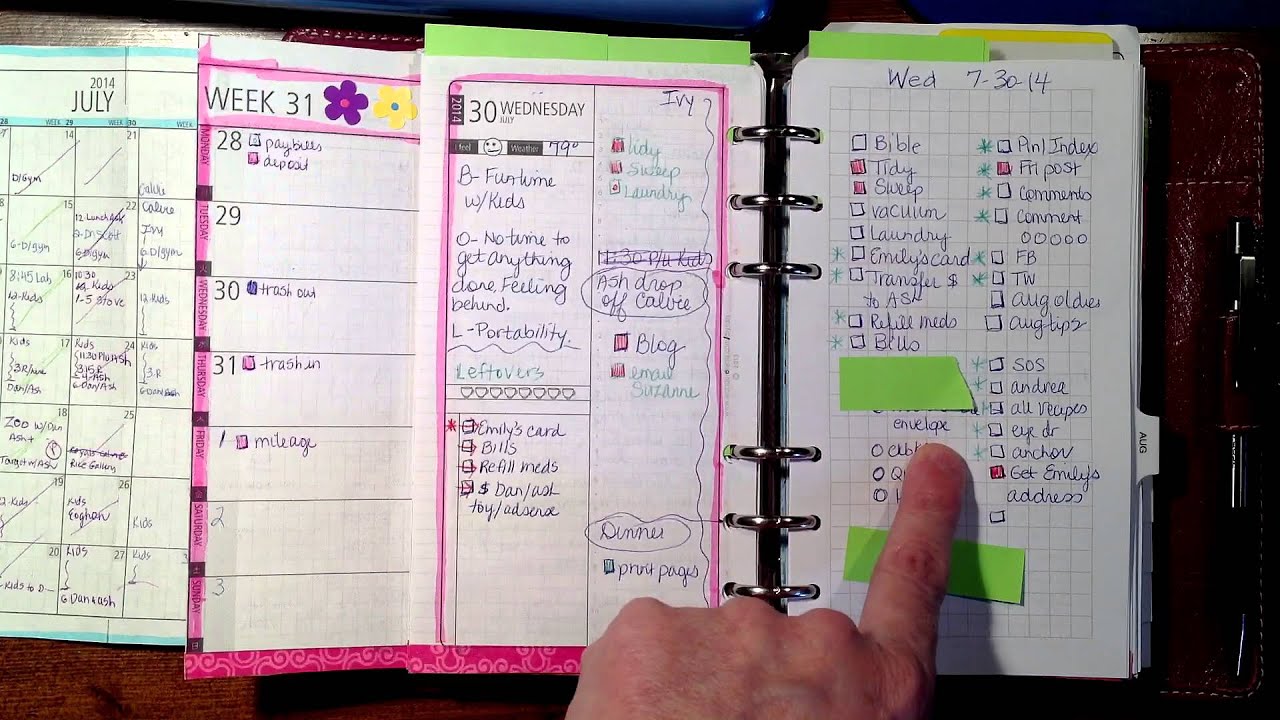 2014
JULY
WEEK
29
WEEK
30
WEEK
14
21
D/Gym
Calvie
15
22
Calvie
Ivy
6-D/gym
6-D/gym
6-D/gym
8:45 Lab
16
10:30
23
12-Kids
Kids
1-5 Stove
12-Kids
Kids
17
Kids
24
Kids
3:15 R
3-R
Dan/Ash
6-Dan/Ash
6-Dan/Ash
18
25
Zoo w/Dan
Ash+
Target w/Ash
Rice Gallery
19
26
Kids
Kids
Eoghan
Kids
20
Kids
27
Kids
Kids to D
6 Dan+ash
WEEK 31
MONDAY
28
pay bills
deposit
TUESDAY
29
WEDNESDAY
30
trash out
THURSDAY
31
trash in
FRIDAY
1
mileage
SATURDAY
2
SUNDAY
3
2014
30 WEDNESDAY
JULY
I feel
Weather
79°
B- Funtime
w/Kids
O- No time to
get anything
done. Feeling
behind.
L- Portability.
Leftovers
Emily's card
Bills
Refill meds
$ Dan/ash
toy/adsense
Ivy
Tidy
Sweep
Laundry
Kids
Ash drop
off Calvie
Blog
email
Suzanne
Dinner
print pages
Wed 7-30-14
Bible
Tidy
Sweep
vacuum
Laundry
Emily's card
Transfer $
to Ash
Refill meds
Bills
envelope
Pin/Index
Fri post
Comments
Comment
FB
TW
Aug oldies
Aug tips
SOS
andrea
all recipes
eye dr
anchor
Get Emily's
address
AUG